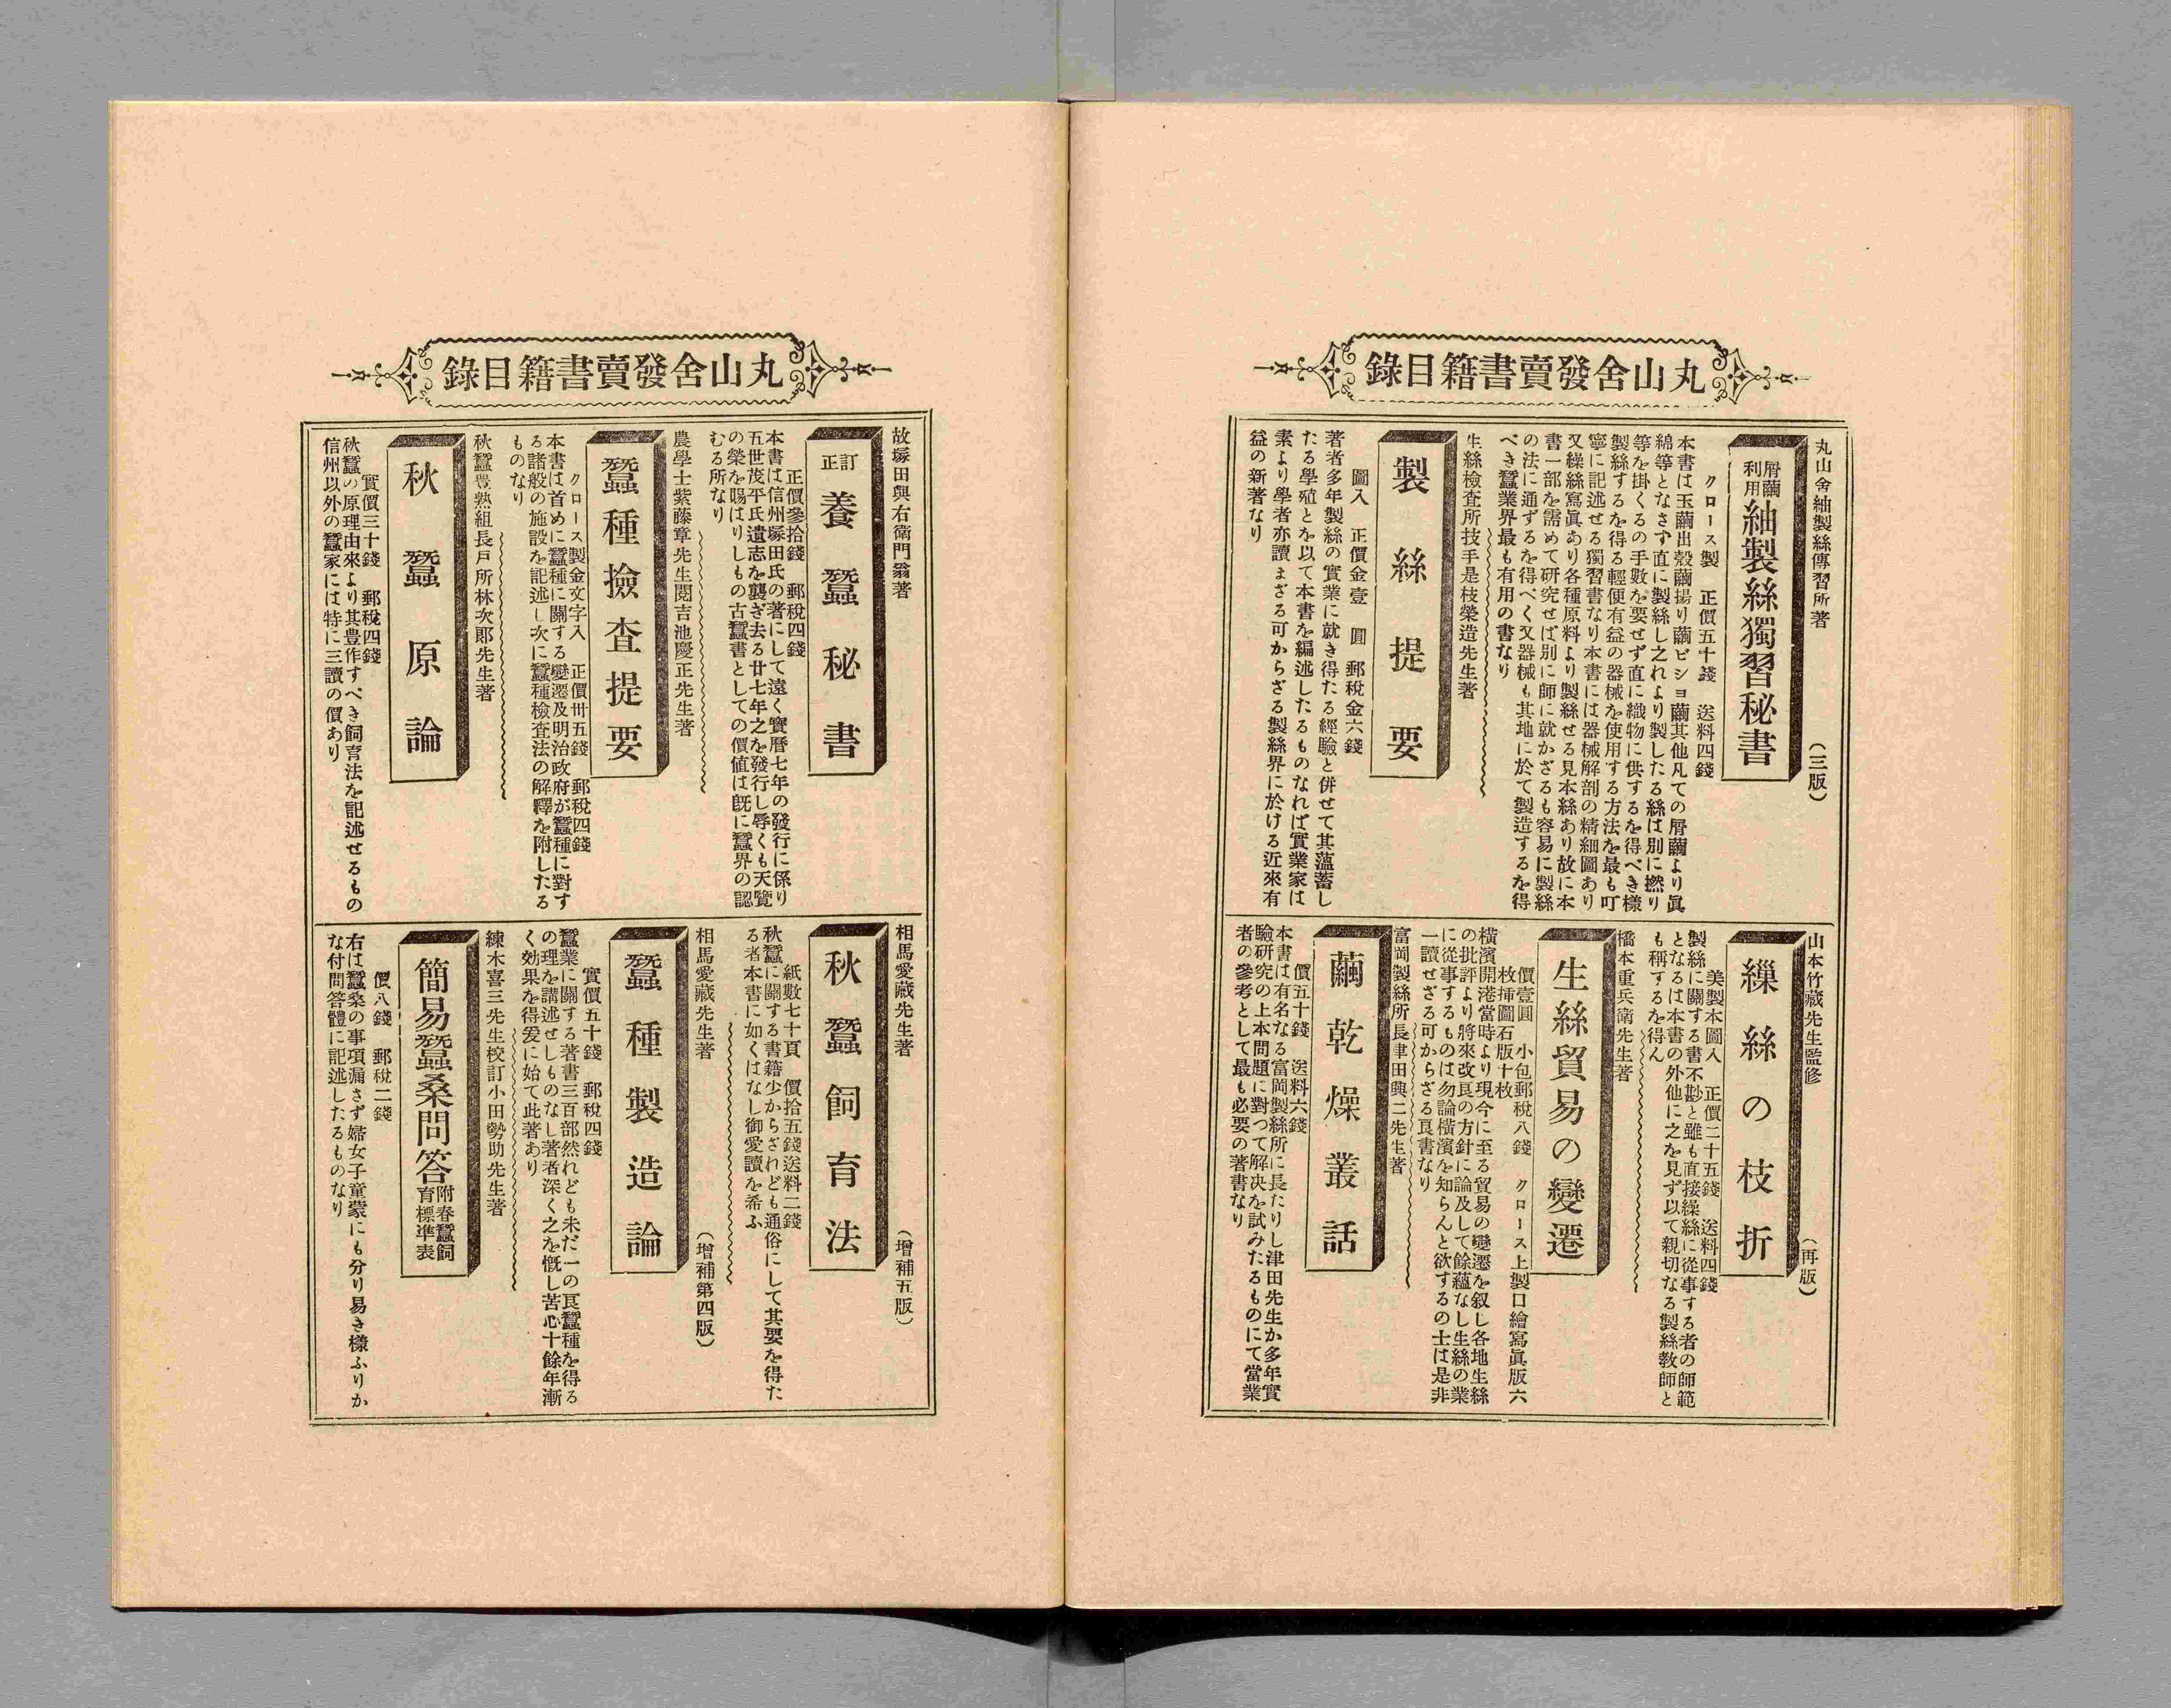 丸山舍發賣書籍目錄
丸山舍紬製絲傳習所著　（三版）
屑繭利用 紬製絲獨習秘書
クロース製　正價五十錢　送料四錢
本書は玉繭出殼繭揚り繭ビショ繭其他凡ての屑繭より眞
綿等となさず直に製絲し之れより製したる絲は別に撚り
等を掛くるの手數を要せず直に織物に供するを得べき樣
製絲するを得る輕便有益の器械を使用する方法を最も叮
寧に記述せる獨習書なり本書には器械解剖の精細圖あり
又繰絲寫眞あり各種原料より製絲せる見本絲あり故に本
書一部を需めて研究せば別に師に就かざるも容易に製絲
の法に通ずるを得べく又器械も其地に於て製造するを得
べき蠶業界最も有用の書なり
生絲檢查所技手是枝榮造先生著
製絲提要
圖入　正價金壹圓　郵稅金六錢
著者多年製絲の實業に就き得たる經驗と併せて其薀蓄し
たる學殖とを以て本書を編述したるものなれば實業家は
素より學者亦讀まざる可からざる製絲界に於ける近來有
益の新著なり
山本竹藏先生監修　（再版）
繰絲の枝折
美製本圖入　正價二十五錢　送料四錢
製絲に關する書不尠と雖も直接繰絲に從事する者の師範
となるは本書の外他に之を見ず以て親切なる製絲敎師と
も稱するを得ん
橋本重兵衛先生著
生絲貿易の變遷
價壹圓　小包郵稅八錢　クロース上製口繪寫眞版六
枚挿圖石版十枚
橫濱開港當時より現今に至る貿易の變遷を叙し各地生絲
の批評より將來改良の方針に論及して餘蘊なし生絲の業
に從事するものは勿論橫濱を知らんと欲するの士は是非
一讀せざる可からざる良書なり
富岡製絲所長津田興二先生著
繭乾燥叢話
價五十錢　送料六錢
本書は有名なる富岡製絲所に長たりし津田先生か多年實
驗硏究の上本問題に對つて解決を試みたるものにて當業
者の參考として最も必要の著書なり
丸山舍發賣書籍目錄
故塚田與右衛門翁著
訂正 養蠶秘書
正價參拾錢　郵稅四錢
本書は信州塚田氏の著にして遠く寶曆七年の發行に係り
五世茂平氏遺志を襲ぎ去る廿七年之を發行し辱くも天覽
の榮を賜はりしもの古蠶書としての價値は旣に蠶界の認
むる所なり
農學士紫藤章先生閱吉池慶正先生著
蠶種撿查提要
クロース製金文字入　正價卅五錢　郵稅四錢
本書は首めに蠶種に關する變遷及明治政府が蠶種に對す
る諸般の施設を記述し次に蠶種檢查法の解釋を附したる
ものなり
秋蠶豊熟組長戶所林次郞先生著
秋蠶原論
實價三十錢　郵稅四錢
秋蠶の原理由來より其豊作すべき飼育法を記述せるもの
信州以外の蠶家には特に三讀の價あり
相馬愛藏先生著　（增補五版）
秋蠶飼育法
紙數七十頁　價拾五錢送料二錢
秋蠶に關する書籍少からざれども通俗にして其要を得た
る者本書に如くはなし御愛讀を希ふ
相馬愛藏先生著　（增補第四版）
蠶種製造論
實價五十錢　郵稅四錢
蠶業に關する著書三百部然れども未だ一の良蠶種を得る
の理を講述せしものなし著者深く之を慨し苦心十餘年漸
く効果を得爰に始て此著あり
練木喜三先生校訂小田勢助先生著
簡易蠶桑問答 附春蠶飼育標準表
價八錢　郵稅二錢
右は蠶桑の事項漏さず婦女子童蒙にも分り易き樣ふりか
な付問答體に記述したるものなり